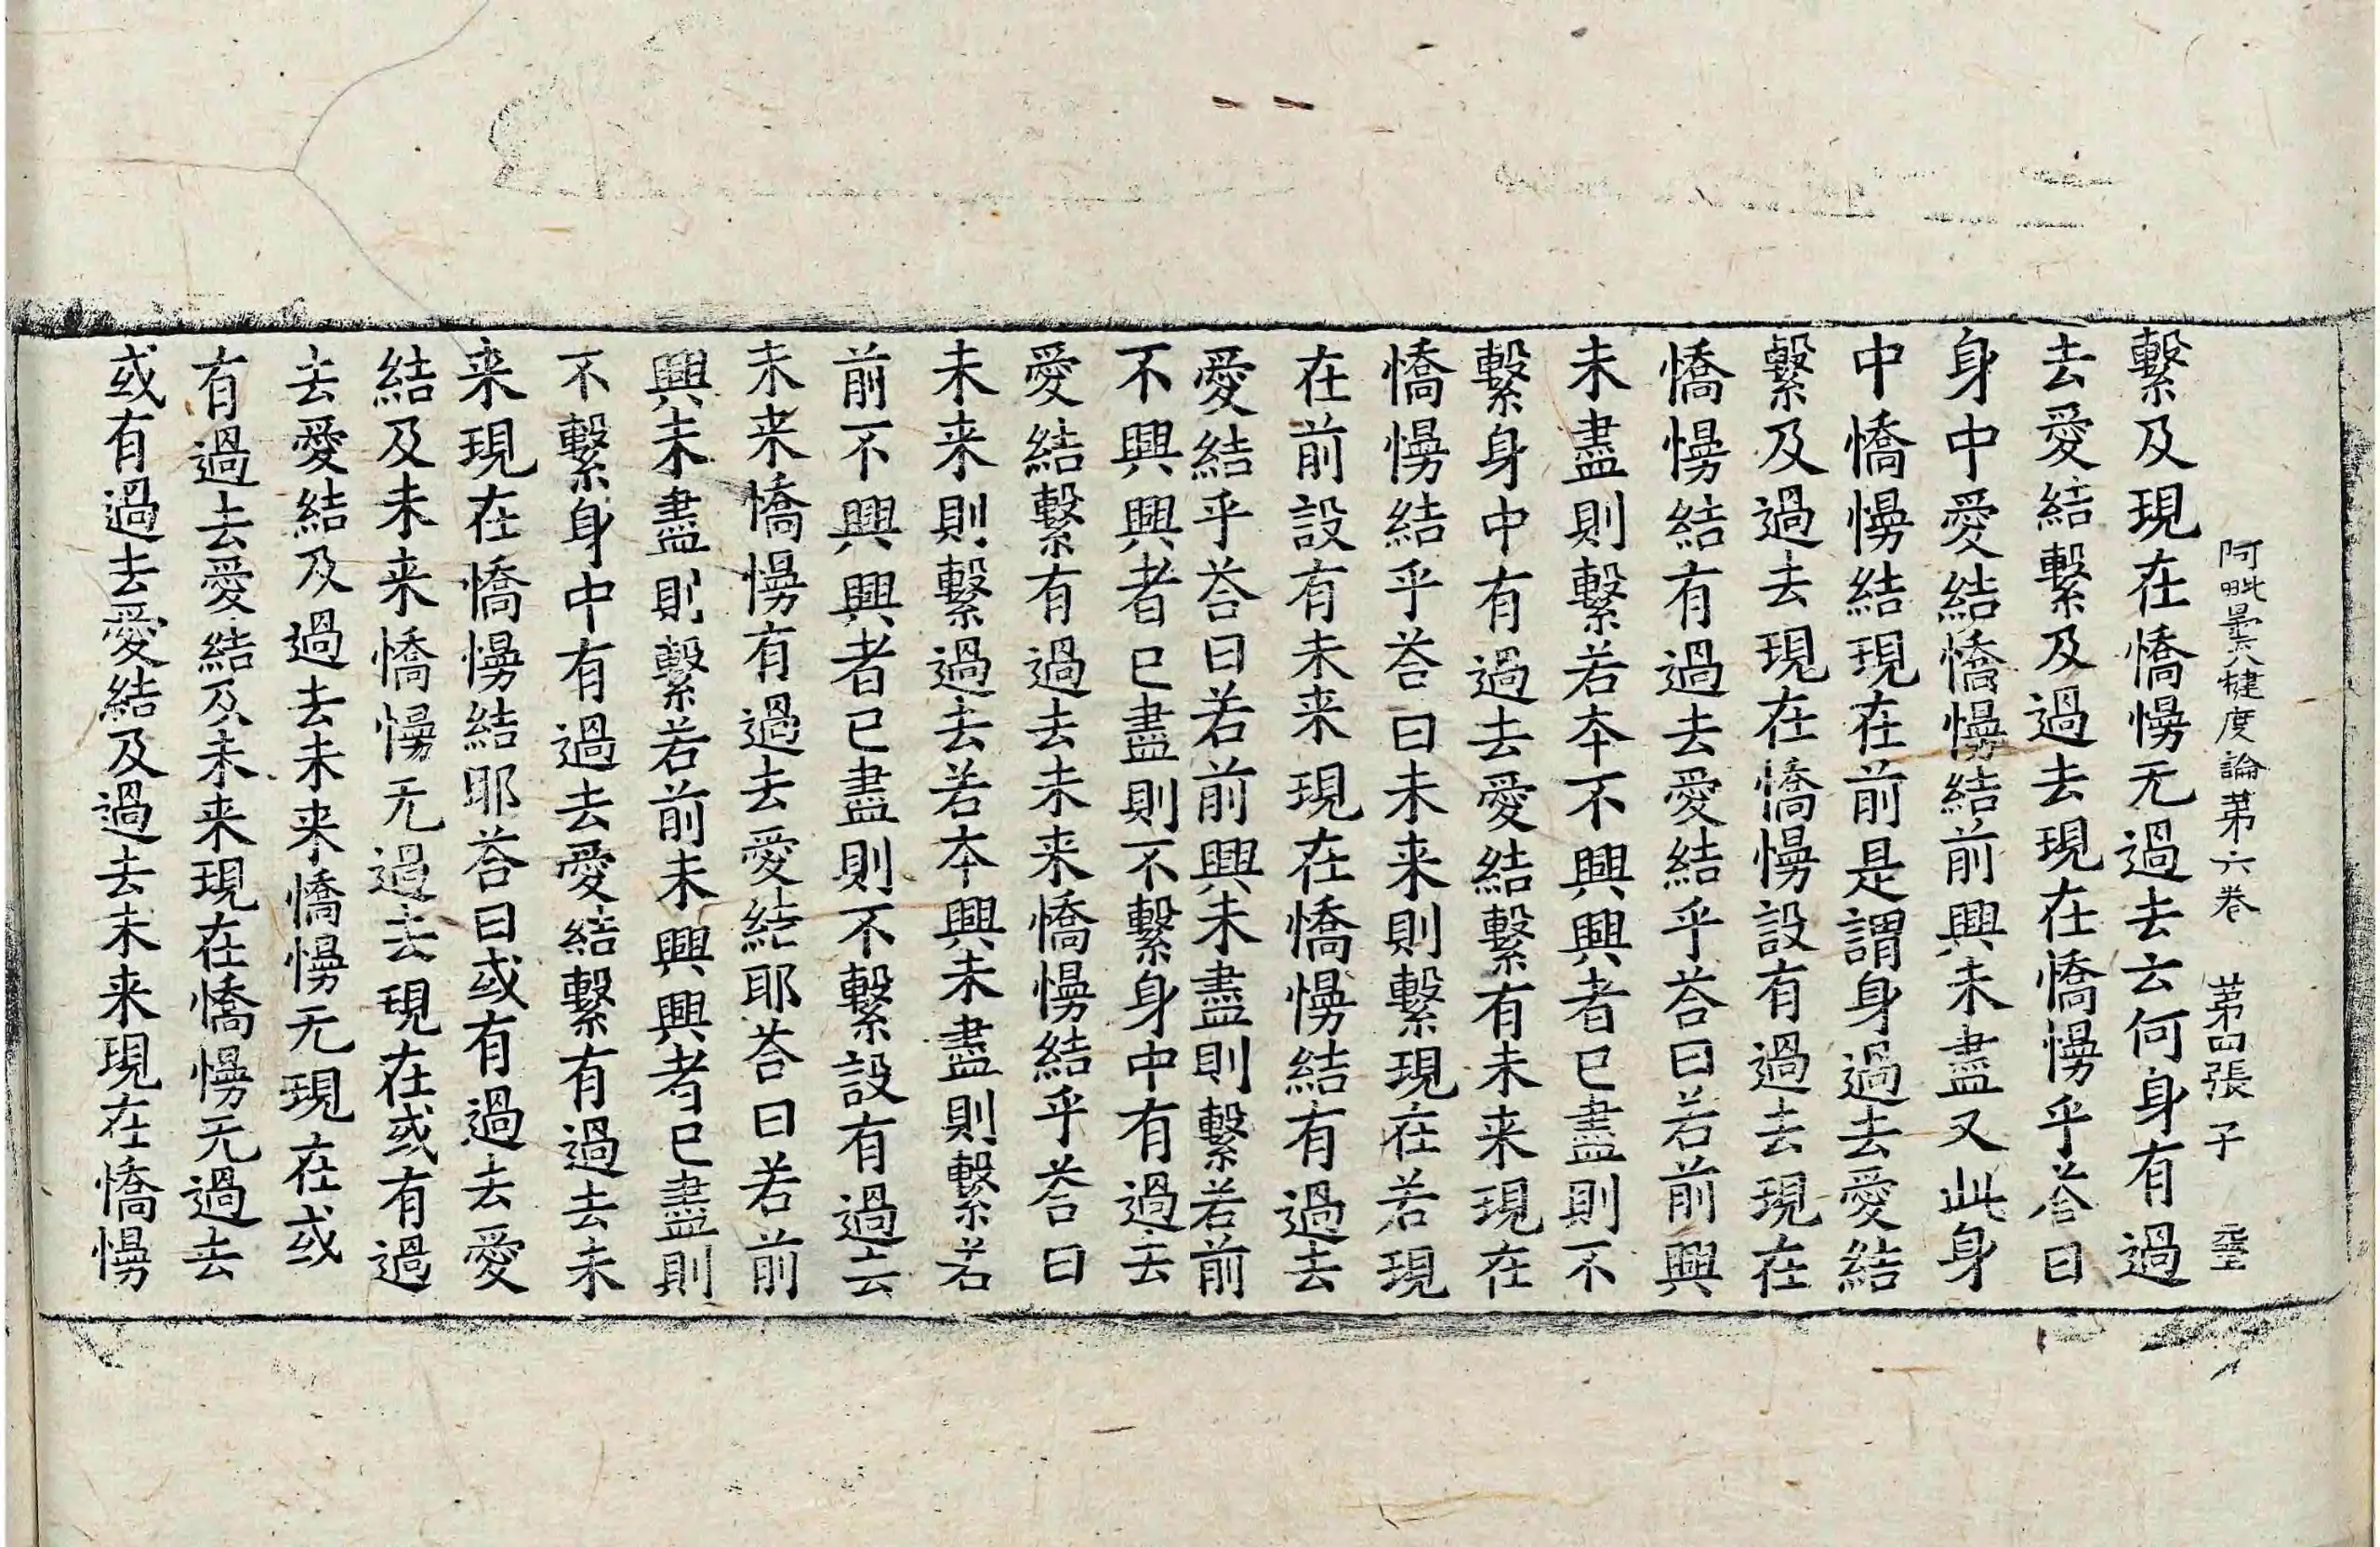 阿毗曇八揵度論第六卷 第四張 子
繫及現在憍慢无過去云何身有過
去愛結繫及過去現在憍慢乎荅曰
身中愛結憍慢結前興未盡又此身
中憍慢結現在前是謂身過去愛結
繫及過去現在憍慢設有過去現在
憍慢結有過去愛結乎荅曰若前興
未盡則繫若本不興興者已盡則不
繫身中有過去愛結繫有未来現在
憍慢結乎荅曰未来則繫現在若現
在前設有未来現在憍慢結有過去
愛結乎荅曰若前興未盡則繫若前
不興興者已盡則不繫身中有過去
愛結繫有過去未来憍慢結乎荅曰
未来則繫過去若本興未盡則繫若
前不興興者已盡則不繫設有過去
未来憍慢有過去愛結耶荅曰若前
興未盡則繫若前未興興者已盡則
不繫身中有過去愛結繫有過去未
来現在憍慢結耶荅曰或有過去愛
結及未来憍慢无過去現在或有過
去愛結及過去未来憍慢无現在或
有過去愛結及未来現在憍慢无過去
或有過去愛結及過去未来現在憍慢